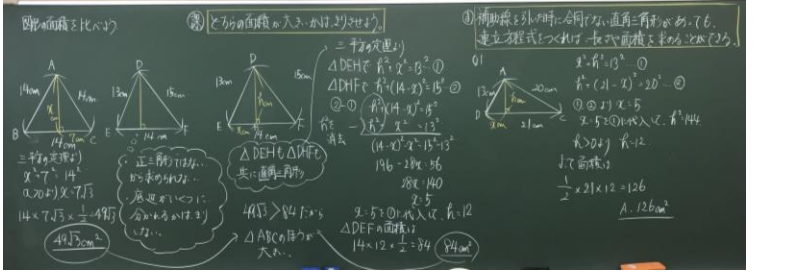 図形の面積を比べよう
A
14cm
14cm
x cm
B
7cm
C
14cm
三平方の定理より
x²+7²=14²
x>0より、x=7√3
14×7√3×1/2=49√3
49√3cm²
D
13cm
15cm
E
F
14cm
・正三角形ではないから求められない。
・底辺がいくつに分かれるかはっきりしない。
どちらの面積が大きいかはっきりさせよう。
D
13cm
15cm
hcm
E
xcm
F
14cm
△DEHも△DHFも共に直角三角形
49√3>84だから
△ABCのほうが大きい。
三平方の定理より
△DEHで h²+x²=13²…①
△DHFで h²+(14-x)²=15²…②
②-①
h²を消去
h²+(14-x)²=15²
-) h²+x²=13²
(14-x)²-x²=15²-13²
196-28x=56
28x=140
x=5
x=5を①に代入して、h=12
△DEFの面積は
14×12×1/2=84
84cm²
補助線を引いた時に合同でない直角三角形があっても、
連立方程式をつくれば、長さや面積を求めることができる。
Q1
A
13cm
20cm
hcm
B
xcm
C
21cm
x²+h²=13²…①
h²+(21-x)²=20²…②
①,②より x=5
x=5を①に代入して、h²=144
h>0より h=12
よって面積は
1/2×21×12=126
A. 126cm²